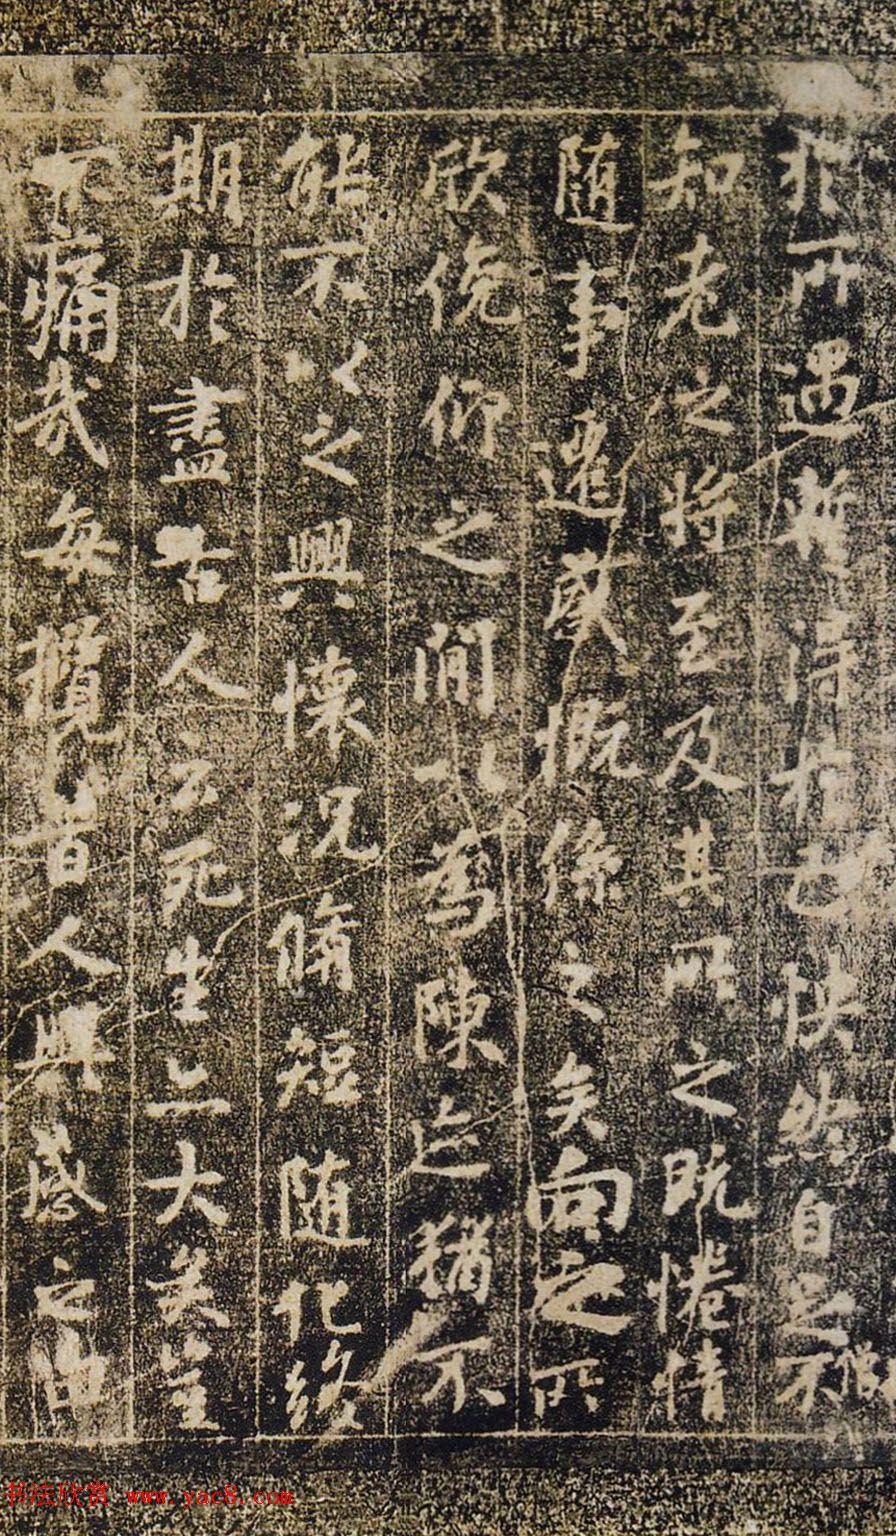 於所遇暫得於己快然自足不
知老之將至及其所之既惓情
随事遷感慨係之矣向之所
欣俛仰之間以為陳迹猶不
能不以之興懷況脩短随化終
期於盡古人云死生亦大矣豈
不痛哉每攬昔人興感之由
书法欣赏 www.yac8.com